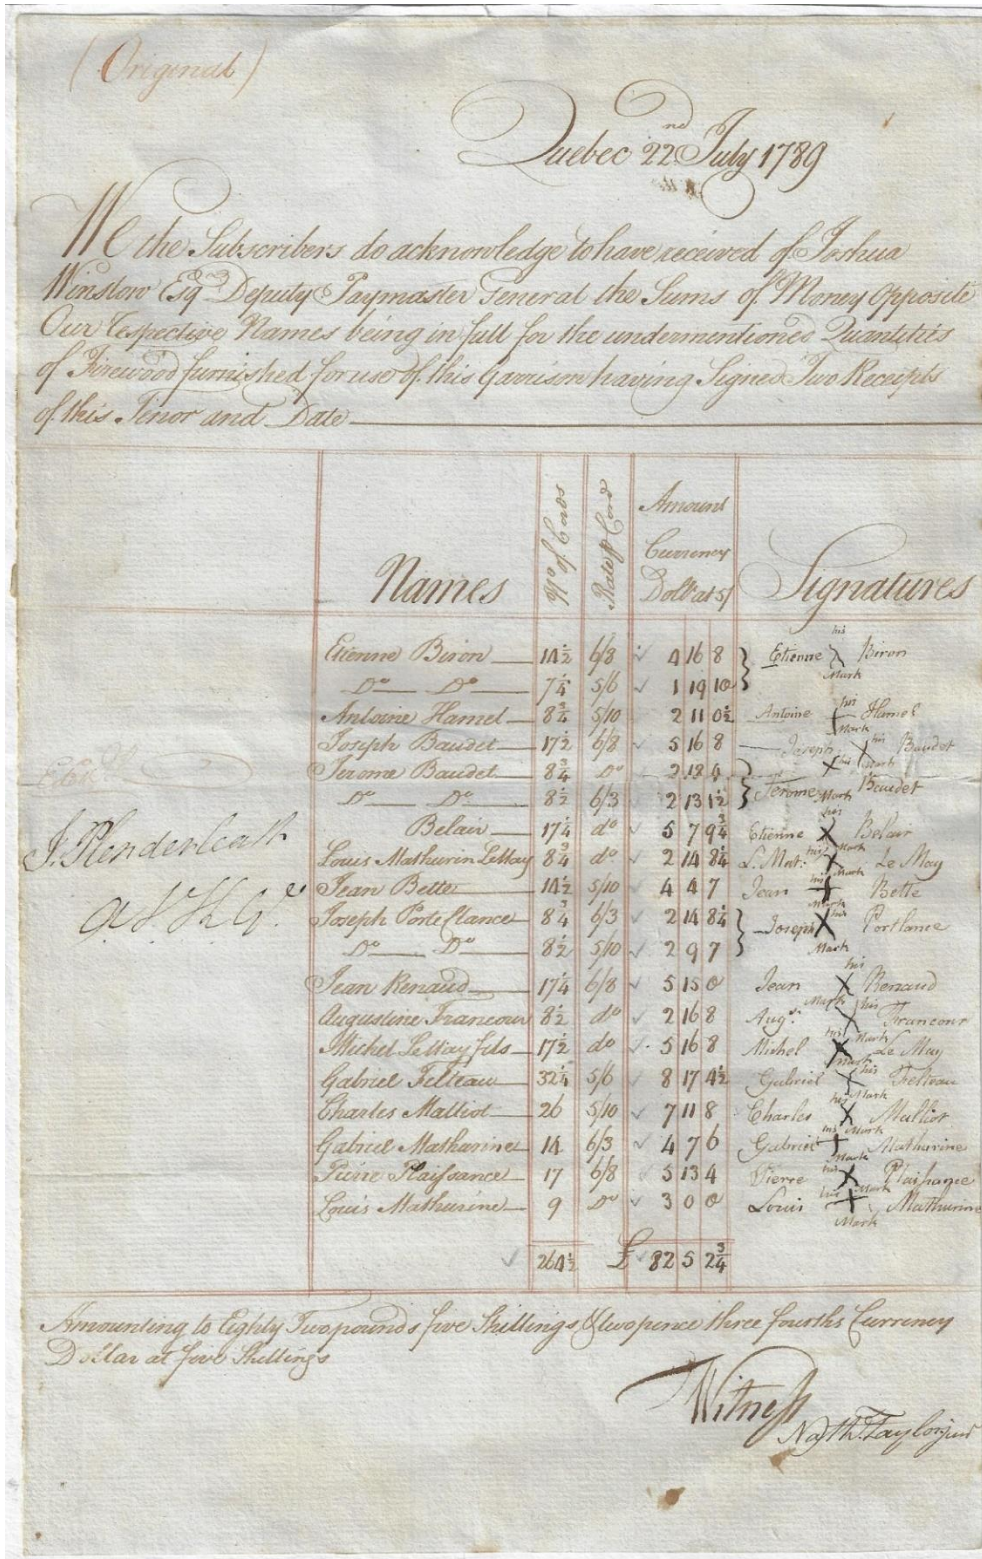 (Original)
Quebec 22nd July 1789
We the Subscribers do acknowledge to have received of Joshua
Winslow Esqr Deputy Paymaster General the Sums of Money Opposite
Our respective Names being in full for the undermentioned Quantities
of Firewood furnished for use of this Garrison having Signed Two Receipts
of this Tenor and Date
Names No of Cords Rate ₱ Cord Amount Currency Dollr at 5/ Signatures
Etienne Biron 14½ 6/8 4 16 8 Etienne his Mark Biron
Do Do 7¼ 5/6 1 19 10
Antoine Hamel 8¾ 5/10 2 11 0½ Antoine his X Mark Hamel
Joseph Baudet 17½ 6/8 5 16 8 Joseph his X Mark Baudet
Jerome Baudet 8¾ Do 2 18 4 Jerome his X Mark Baudet
Do Do 8½ 6/3 2 13 1½
Belair 17¼ do 5 7 9¾ Etienne his X Mark Belair
Louis Mathurin LeMay 8¾ do 2 14 8¼ L. Mat: his X Mark Le May
Jean Bette 14½ 5/10 4 4 7 Jean his X Mark Bette
Joseph Porte Clance 8¾ 6/3 2 14 8¼ Joseph his X Mark Portlance
Do Do 8½ 5/10 2 9 7
Jean Renaud 17¼ 6/8 5 15 0 Jean his X Mark Renaud
Augustine Francour 8½ do 2 16 8 Augn. his X Mark Francour
Michel LeMay fils 17½ do 5 16 8 Michel his X Mark Le May
Gabriel Felteau 32¼ 5/6 8 17 4½ Gabriel his X Mark Felteau
Charles Malliot 26 5/10 7 11 8 Charles his X Mark Malliot
Gabriel Mathurine 14 6/3 4 7 6 Gabriel his X Mark Mathurine
Pierre Plaissance 17 6/8 5 13 4 Pierre his X Mark Plaisance
Louis Mathurine 9 Do 3 0 0 Louis his X Mark Mathurine
264½ £ 82 5 2¾
J. Plenderleath
Amounting to Eighty Two pounds five Shillings & two pence three fourths Currency
Dollar at five Shillings
Witness
Nath. Taylor junr